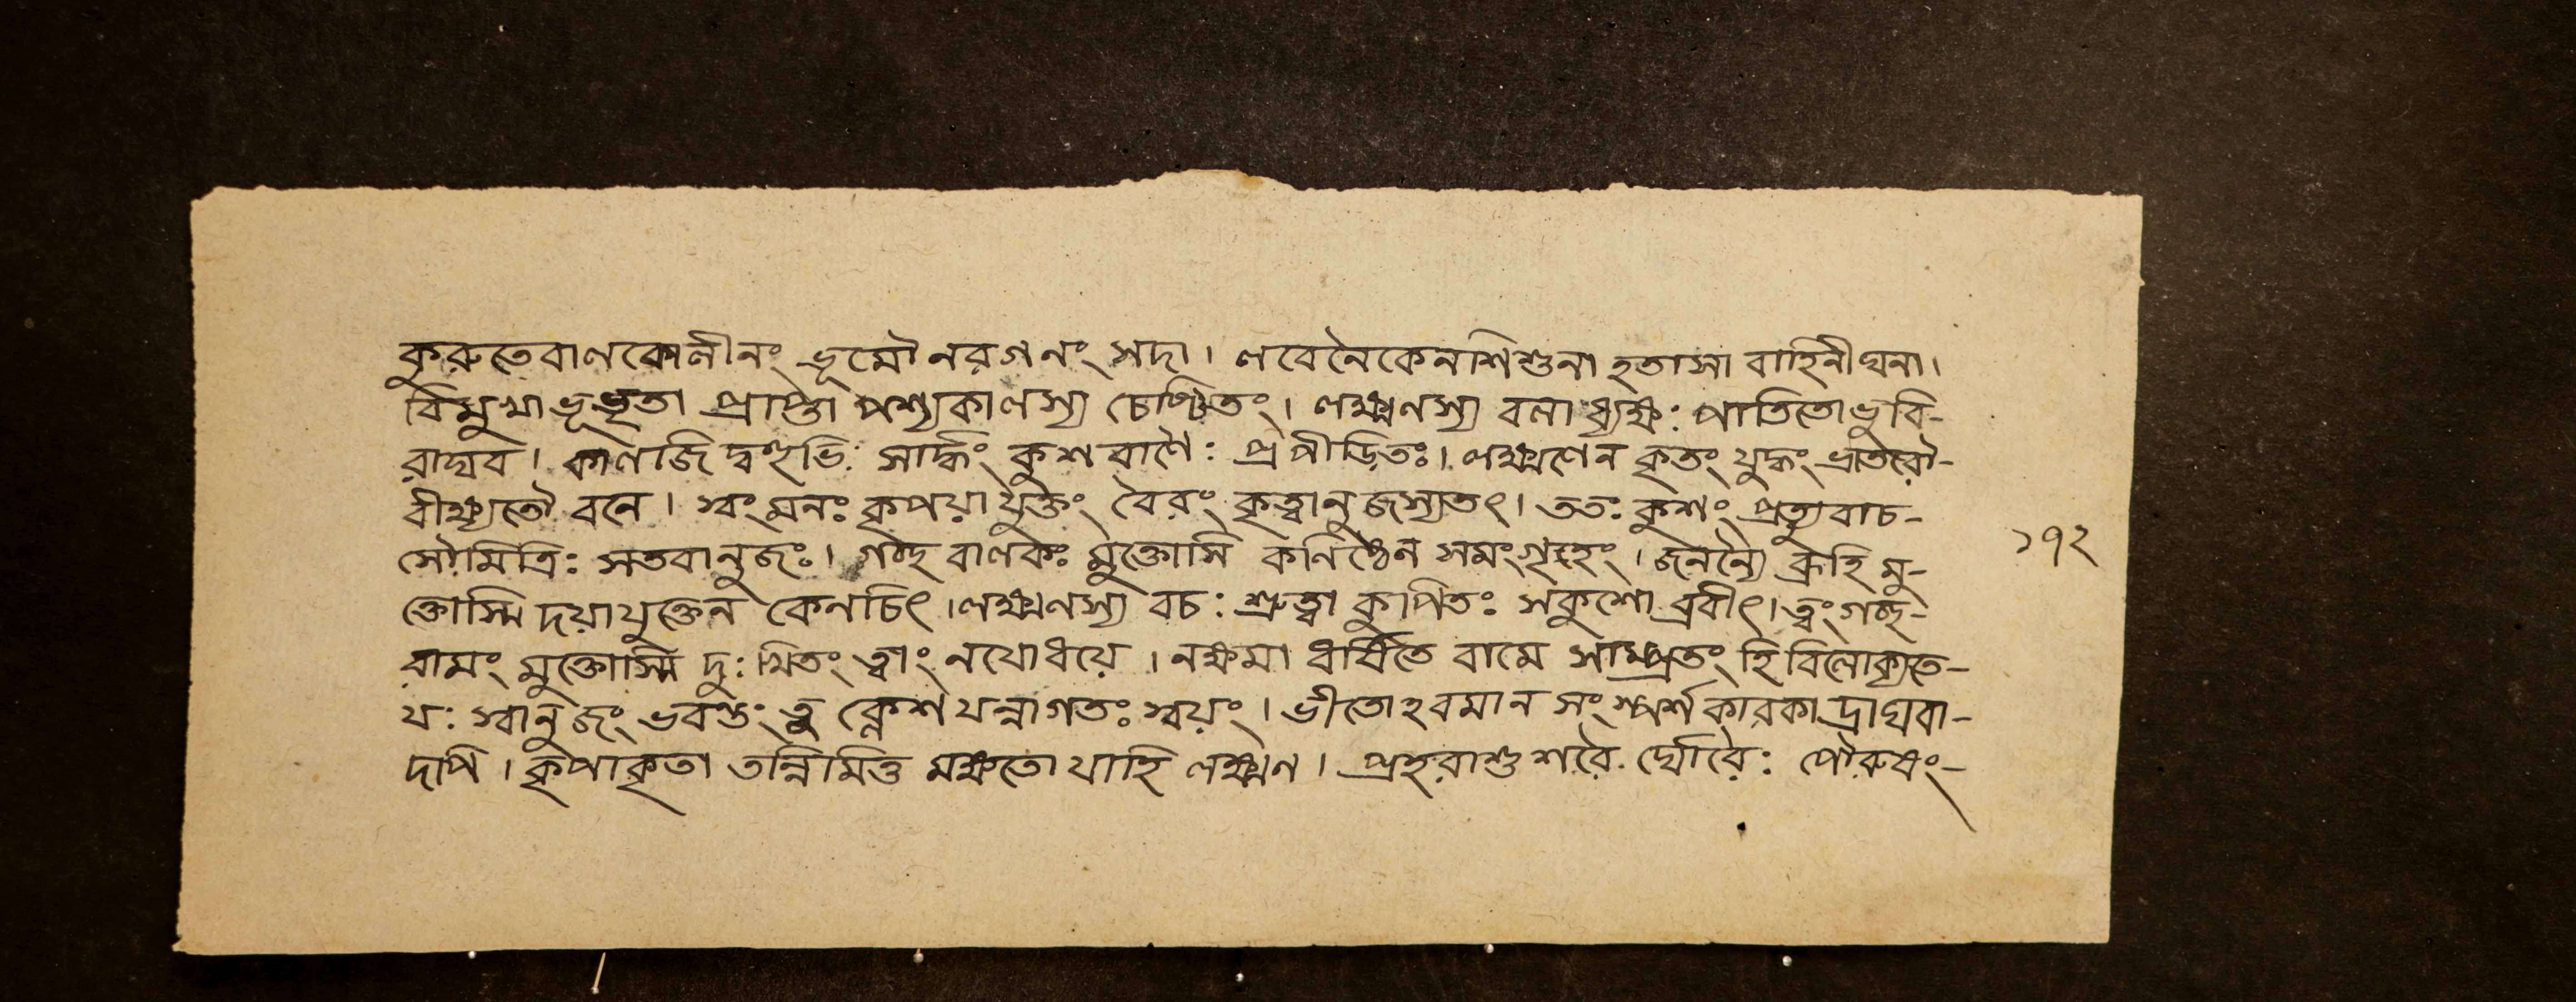 কুরুতেবাণকোলীনং ভূমৌ নরগনং সদা। লবেনৈকেনশিশুনা হতাসা বাহিনীঘনা।
বিমুখাভূভৃতা প্রাপ্তা পশ্যকালস্য চেষ্টিতং। লক্ষ্মণস্য বলাধ্যক্ষ: পাতিতোভুবি-
রাঘব। কালজিদ্বহুভি: সার্দ্ধং কুশবাণৈ: প্রপীড়িতঃ। লক্ষ্মণেন কৃতং যুদ্ধং ভ্রাতরৌ-
বীক্ষ্যতৌ বনে। স্বং মনঃ কৃপয়াযুক্তং বৈরং কৃত্বানুজস্যতৎ। ততঃ কুশং প্রত্যুবাচ-
সৌমিত্রি: সতবানুজঃ। গচ্ছ বালকঃ মুক্তোসি কনিষ্ঠেন সমংগৃহং। জনন্যৈ ব্রূহি মু-
ক্তোস্মি দয়াযুক্তেন কেনচিৎ। লক্ষ্মণস্য বচ: শ্রুত্বা কুপিতঃ সকুশো ব্রবীৎ। ত্বংগচ্ছ-
রামং মুক্তোসি দু:খিতং ত্বাং নযোধয়ে। নক্ষমা ধর্ষিতে বামে সাম্প্রতং হি বিলোক্যতে-
য: স্বানুজং ভবন্তং তু ক্লেশযন্নাগতঃ স্বয়ং। ভীতোহবমান সংস্পর্শকারকাদ্রাঘবা-
দপি। কৃপাকৃতা তন্নিমিত্ত মক্ষতো যাহি লক্ষ্মণ। প্রহরাশু শরৈ র্ঘোরৈ: পৌরুষং-
১৭২